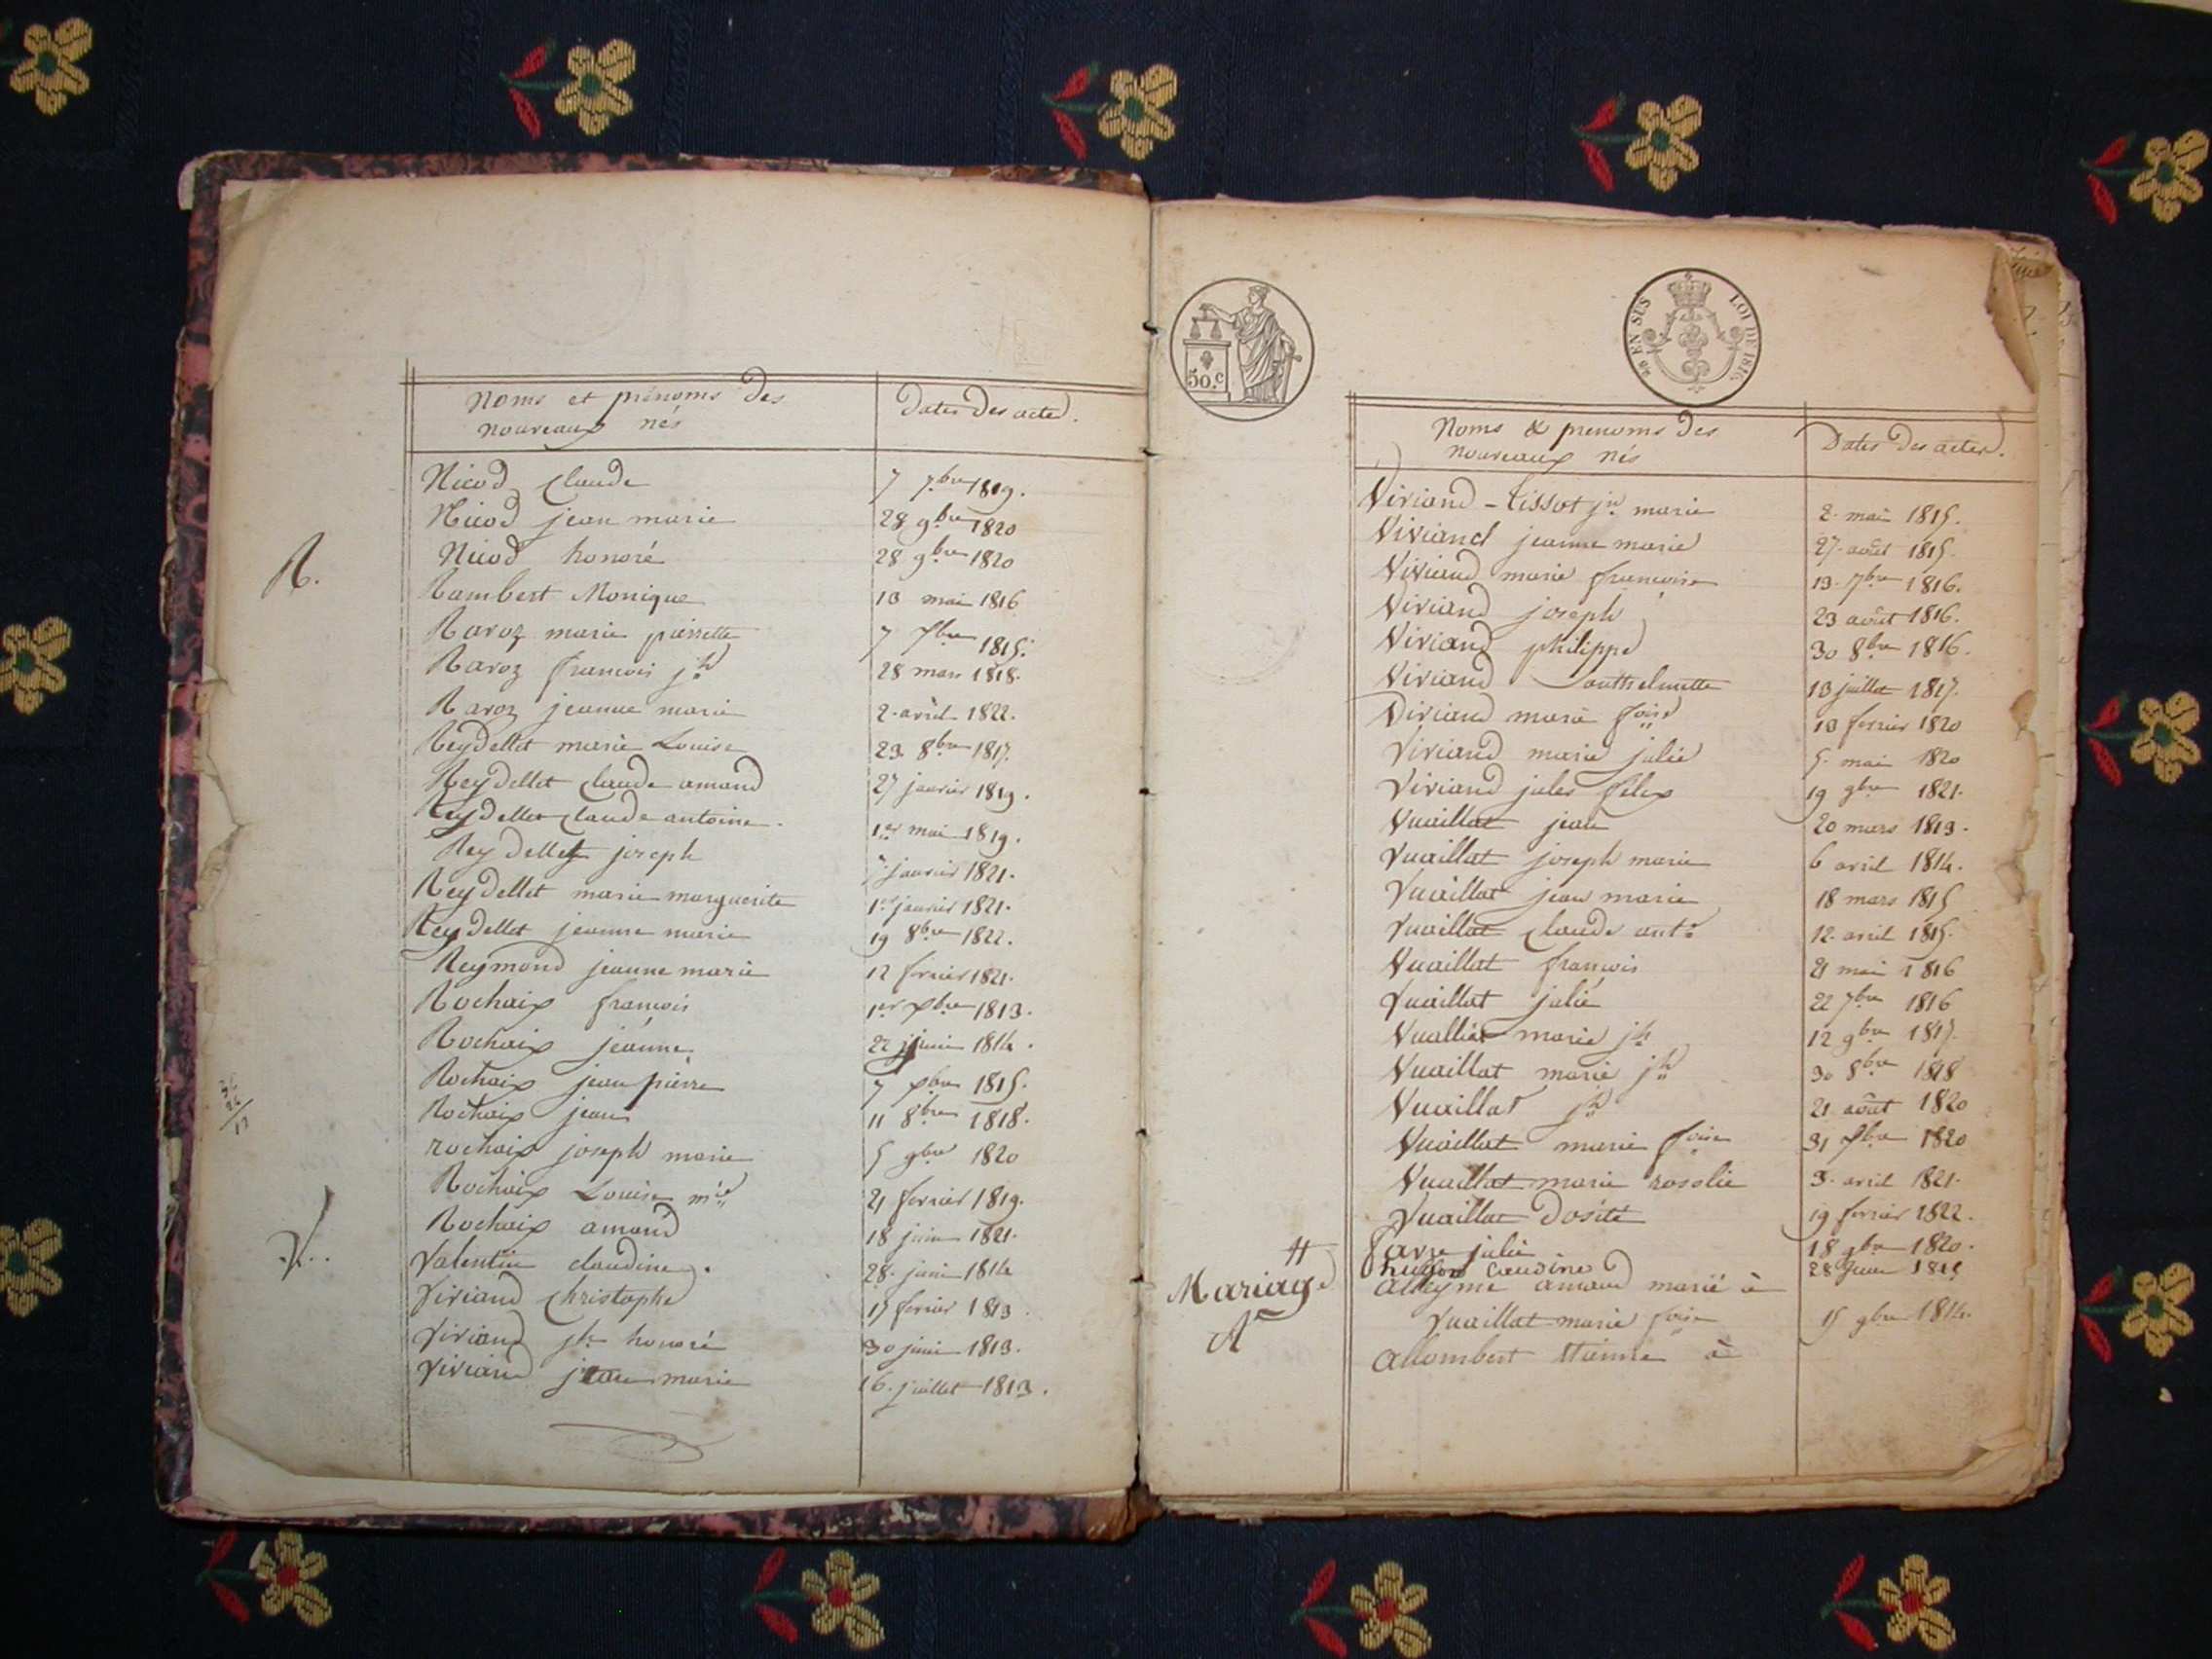 Noms et prénoms des
nouveaux nés
Dates des actes.
Nicod Claude 7 7bre 1819.
Nicod jean marie 28 9bre 1820
Nicod honoré 28 9bre 1820
R.
Rambert Monique 13 mai 1816
Ravoz marie pierrette 7 1815.
Ravoz francois jh 28 mars 1818.
Ravoz jeanne marie 2. avril 1822.
Reydellet marie Louise 23 8bre 1817.
Reydellet Claude amand 27 janvier 1819.
Reydellet Claude antoine. 1er mai 1819.
Reydellet joseph janvier 1821.
Reydellet marie marguerite 1er janvier 1821.
Reydellet jeanne marie 19 8bre 1822.
Reymond jeanne marie 12 fevrier 1821.
Rochaix francois 1er xbre 1813.
Rochaix jeanne 22 juin 1814.
Rochaix jean pierre 7 xbre 1815.
Rochaix jean 11 8bre 1818.
rochaix joseph marie 5 9bre 1820
Rochaix Louise mie 21 fevrier 1819.
Rochaix amand 18 juin 1821.
V.
Valentin claudine. 28. juin 1814
Viviand Christophe 15 fevrier 1813.
Viviand jh honoré 30 juin 1813.
Viviand jean marie 16. juillet 1813.
50.c
EN SUS LOI DE 1816.
Noms & prenoms des
nouveaux nés
Dates des actes.
Viviand - tissot jn marie 2. mai 1815.
Viviand jeanne marie 27. août 1815.
Viviand marie francoise 13. 7bre 1816.
Viviand joseph 23 août 1816.
Viviand philippe 30 8bre 1816.
Viviand anthelmette 13 juillet 1817.
Viviand marie foise 13 fevrier 1820
Viviand marie julie 5. mai 1820
Viviand jules felix 19 9bre 1821.
Vuaillat jean 20 mars 1813.
Vuaillat joseph marie 6 avril 1814.
Vuaillat jean marie 18 mars 1815
Vuaillat Claude ante 12. avril 1815.
Vuaillat francois 21 mai 1816
Vuaillat julie 22 7bre 1816
marie jh 12 9bre 1817.
Vuaillat marie jh 30 8bre 1818
Vuaillat jh 21 août 1820
Vuaillat marie foise 31 xbre 1820
Vuaillat marie rosalie 3. avril 1821.
Vuaillat Dosité 19 fevrier 1822.
Favre julie 18 9bre 1820.
28 juin
Mariage
A
Alleyme amand marié à
Vuaillat marie foise 15 9bre 1814.
Allombert Etienne à